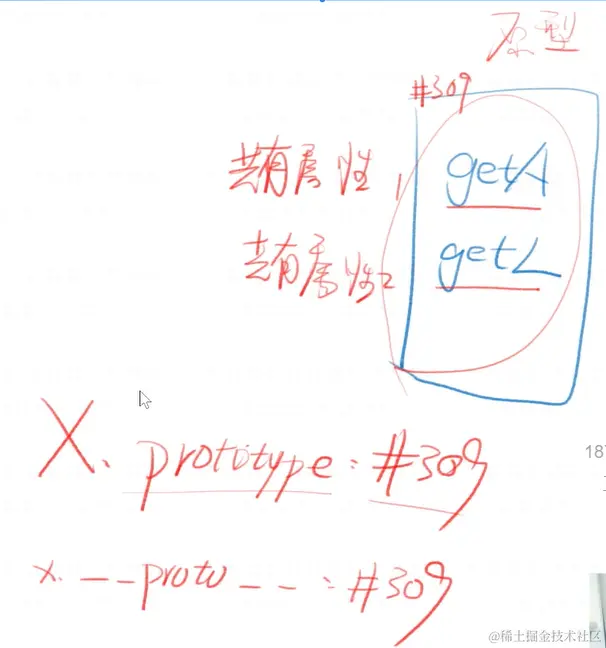 原型
#309
共有属性1 getA
共有属性2 getL
X.prototype:#309
187
x.__proto__:#309
@稀土掘金技术社区